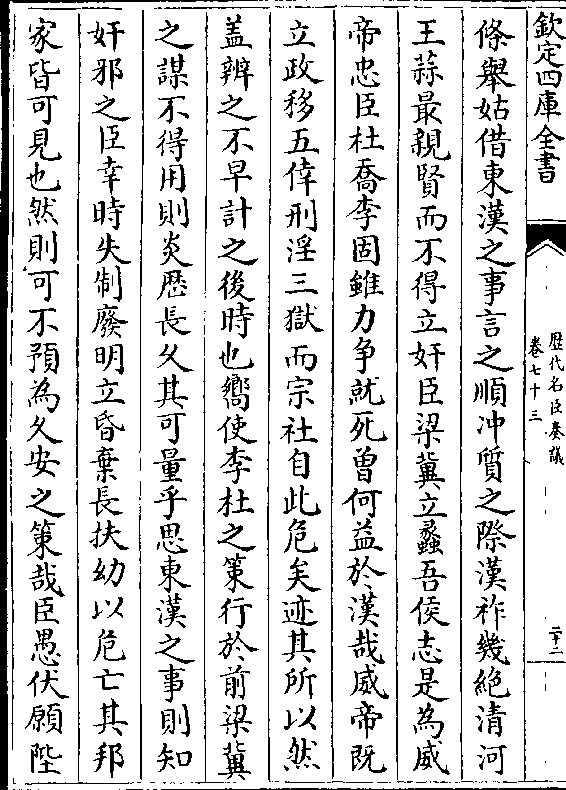 欽定四庫全書
歷代名臣奏議
卷七十三
二十二
條舉姑借東漢之事言之順冲質之際漢祚幾絶清河
王蒜最親賢而不得立奸臣梁冀立蠡吾侯志是為威
帝忠臣杜喬李固雖力争就死曽何益於漢哉威帝既
立政移五倖刑淫三獄而宗社自此危矣迹其所以然
盖辨之不早計之後時也嚮使李杜之策行於前梁冀
之謀不得用則炎歴長久其可量乎思東漢之事則知
奸邪之臣幸時失制廢明立昏棄長扶幼以危亡其邦
家皆可見也然則可不預為久安之策哉臣愚伏願陛